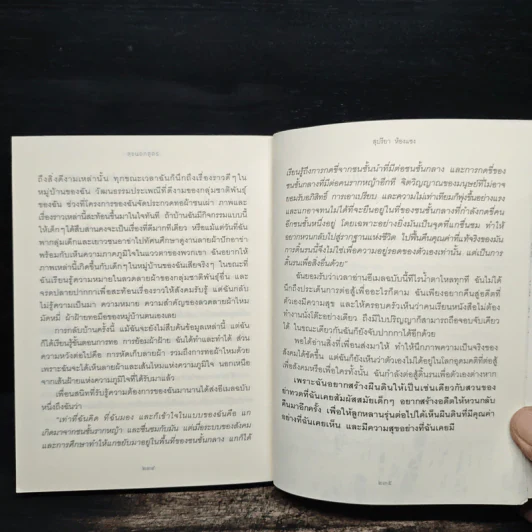 ถึงสิ่งดีงามเหล่านั้น ทุกขณะเวลาฉันก็นึกถึงเรื่องราวดีๆ ใน
หมู่บ้านของฉัน วัฒนธรรมประเพณีที่ดีงามของกลุ่มชาติพันธุ์
ของฉัน ช่วงที่โครงการของฉันจัดประกวดทอผ้าชนเผ่า ภาพและ
เรื่องราวเหล่านี้สะท้อนขึ้นมาในใจทันที ถ้าบ้านฉันมีกิจกรรมแบบนี้
ให้เด็กๆ ได้สืบสานคงจะเป็นเรื่องที่ดีมากทีเดียว หรือแม้แต่วันที่ฉัน
พากลุ่มเด็กและเยาวชนอาข่าไปทัศนศึกษาดูงานลายผ้าปักอาข่า
พร้อมกับเห็นความภาคภูมิใจในแววตาของพวกเขา ฉันอยากให้
ภาพเหล่านี้เกิดขึ้นกับเด็กๆ ในหมู่บ้านของฉันเสียจริงๆ ในขณะที่
ฉันเรียนรู้ความหมายในลวดลายผ้าของกลุ่มชาติพันธุ์อื่น และ
จรดปลายปากกาเพื่อสะท้อนเรื่องราวให้สังคมรับรู้ แต่ฉันกลับ
ไม่รู้ความเป็นมา ความหมาย ความสำคัญของลวดลายผ้าไหม
มัดหมี่ ผ้าฝ้ายทอมือของหมู่บ้านตนเองเลย
การกลับบ้านครั้งนี้ แม้ฉันจะยังไม่สืบค้นข้อมูลเหล่านี้ แต่ฉัน
ก็ได้เรียนรู้ขั้นตอนการทอ การย้อมผ้าฝ้าย ฉันได้ทำและทำได้ ส่วน
ความหวังต่อไปคือ การหัดเก็บลายผ้า รวมถึงการทอผ้าไหมด้วย
เพราะฉันจะได้เห็นลายผ้าและเส้นไหมแห่งความภูมิใจ นอกเหนือ
จากเส้นฝ้ายแห่งความภูมิใจที่ได้รับมาแล้ว
เพื่อนสนิทที่รับรู้ความต้องการของฉันมานานได้ส่งอีเมลฉบับ
หนึ่งถึงฉันว่า
"เท่าที่ฉันคิด ที่ฉันมอง และก็เข้าใจในแบบของฉันคือ แก
เกิดมาจากชนชั้นรากหญ้า และชื่นชมกับมัน แต่เมื่อระบบของสังคม
และการศึกษาทำให้แกขยับมาอยู่ในพื้นที่ของชนชั้นกลาง แกก็ได้
๒๓๔
สุปรียา ห้องแซง
เรียนรู้ถึงการกดขี่จากชนชั้นนำที่มีต่อชนชั้นกลาง และการกดขี่ของ
ชนชั้นกลางที่มีต่อคนรากหญ้าอีกที จิตวิญญาณของมนุษย์ที่ไม่อาจ
ยอมรับอภิสิทธิ์ การเอาเปรียบ และความไม่เท่าเทียมก็พุ่งขึ้นอย่างแรง
และแกอาจทนไม่ได้ที่จะยืนอยู่ในที่ของชนชั้นกลางที่กำลังกดขี่คน
อีกชนชั้นหนึ่งอยู่ โดยเฉพาะอย่างยิ่งมันเป็นจุดที่แกชื่นชม ทำให้
อยากหวนกลับไปสู่รากฐานแห่งชีวิต ไปฟื้นคืนคุณค่าที่แท้จริงของมัน
การดิ้นรนนี้จึงไม่ใช่เพื่อความอยู่รอดของตัวเองเท่านั้น แต่เป็นการ
ดิ้นรนเพื่อสิ่งอื่นด้วย"
ฉันยอมรับว่าเวลาอ่านอีเมลฉบับนี้ทีไรน้ำตาไหลทุกที ฉันไม่ได้
นึกถึงประเด็นการต่อสู้เพื่ออะไรก็ตาม ฉันเพียงอยากคืนสู่อดีตที่
ตัวเองมีความสุข และให้ครอบครัวเห็นว่าคนเรียนหนังสือไม่ต้อง
ทำงานนั่งโต๊ะอย่างเดียว ถึงมีใบปริญญาก็สามารถถือจอบจับเคียว
ได้ ในขณะเดียวกันก็ยังจับปากกาได้อีกด้วย
พอได้อ่านสิ่งที่เพื่อนส่งมาให้ ทำให้นึกภาพความเป็นจริงของ
สังคมได้ชัดขึ้น แต่ฉันก็ยังเห็นว่าตัวเองไม่ได้อยู่ในโลกอุดมคติที่ต่อสู้
เพื่อสังคมหรือเพื่อใครทั้งนั้น ฉันกำลังต่อสู้ดิ้นรนเพื่อตัวเองต่างหาก
เพราะฉันอยากสร้างผืนดินให้เป็นเช่นเดียวกับสวนของ
ย่าทวดที่ฉันเคยสัมผัสสมัยเด็กๆ อยากสร้างอดีตให้หวนกลับ
คืนมาอีกครั้ง เพื่อให้ลูกหลานรุ่นต่อไปได้เห็นผืนดินที่มีคุณค่า
อย่างที่ฉันเคยเห็น และมีความสุขอย่างที่ฉันเคยมี
๒๓๕